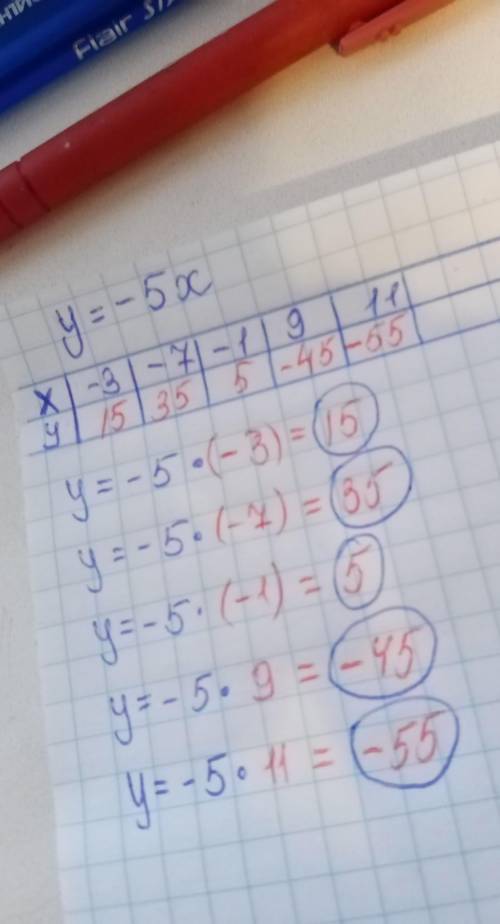 Flair
y = -5x
x | -3 | -7 | -1 | 9 | 11
y | 15 | 35 | 5 | -45 | -55
y = -5 · (-3) = 15
y = -5 · (-7) = 35
y = -5 · (-1) = 5
y = -5 · 9 = -45
y = -5 · 11 = -55